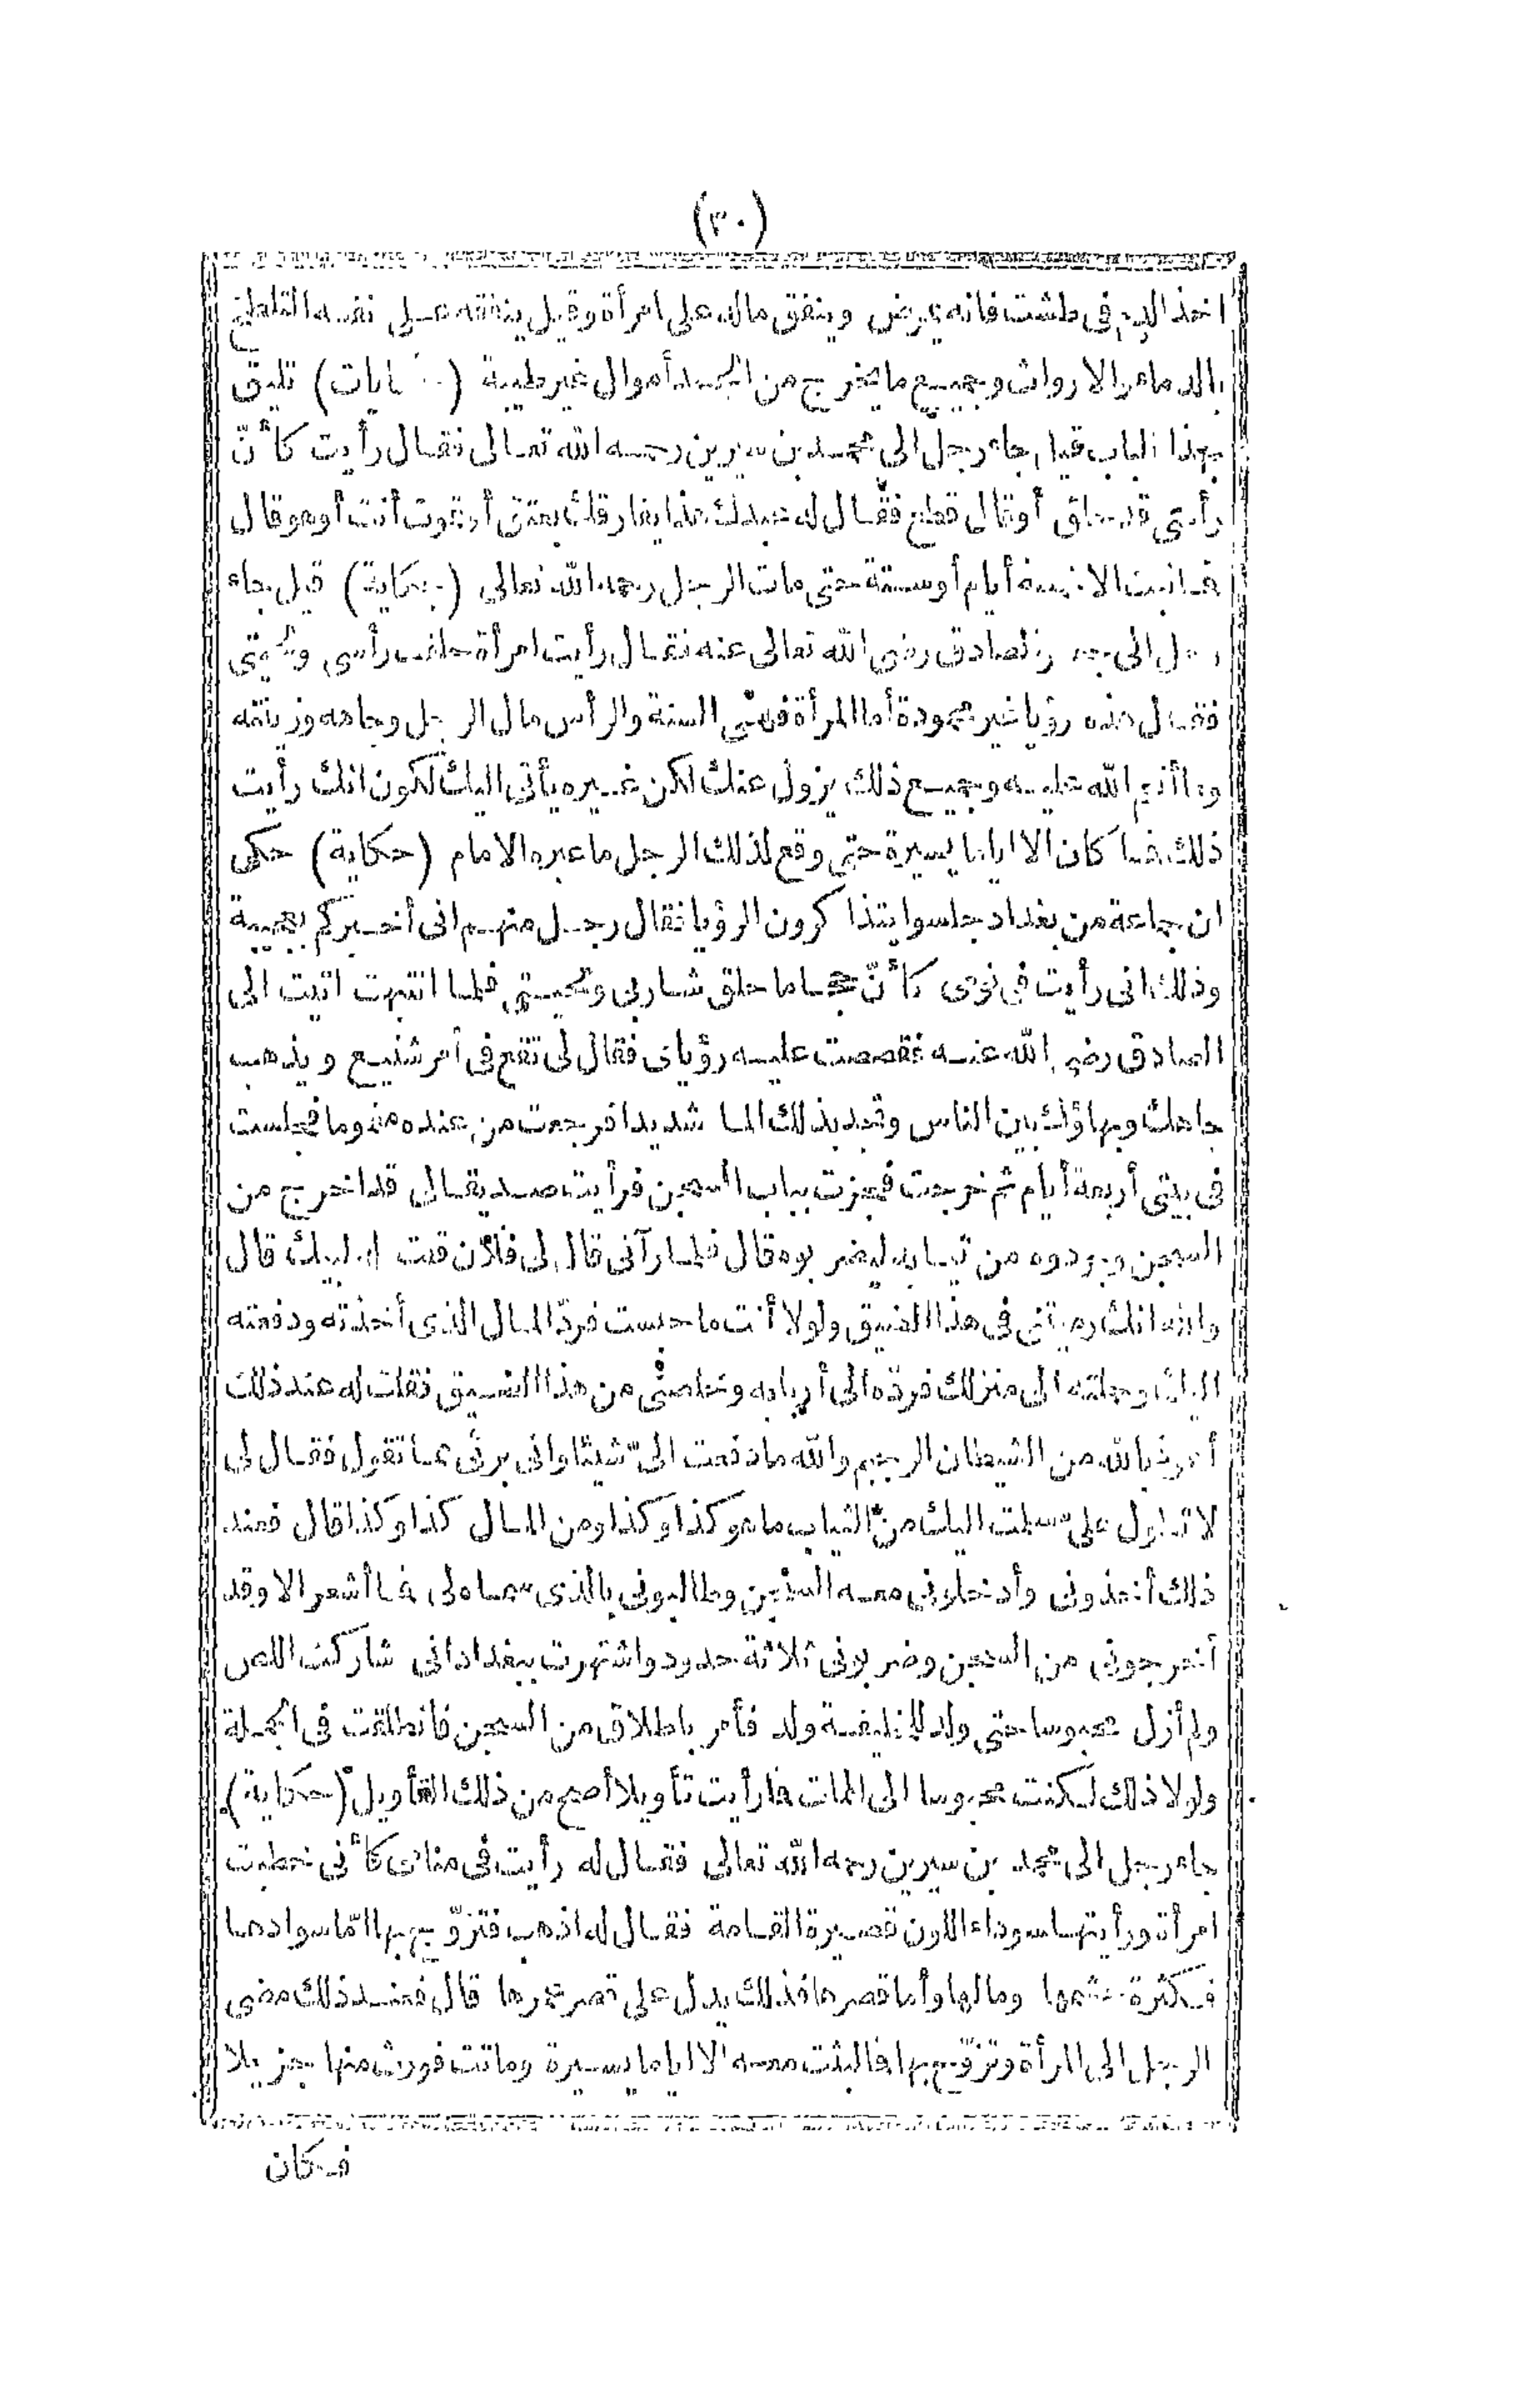 (٣٠)
اخذ الدم فى طشت فانه يمرض وينفق ماله على امرأة وقيل ينفقه على نفسه التلطخ
بالدماء والارواث وجميع ما يخرج من الجسد أموال غير طيبة (حكايات) تليق
بهذا الباب قيل جاء رجل الى محمد بن سيرين رحمه الله تعالى فقال رأيت كأنّ
رأسى قد حلق أوقال قطع فقال له عبدك هذا يفارقك بعتق أو بموت أنت أوهو قال
فما لبث الا خمسة أيام أوستة حتى مات الرجل رحمه الله تعالى (حكاية) قيل جاء
رجل الى جعفر الصادق رضى الله تعالى عنه فقال رأيت امرأة حلقت رأسى
فقال هذه رؤيا غير محمودة أما المرأة فهى السنة والرأس مال الرجل وجاهه وزينته
وما أنعم الله عليه وجميع ذلك يزول عنك لكن غيره يأتى اليك لكون انك رأيت
ذلك فما كان الا اياما يسيرة حتى وقع لذلك الرجل ما عبره الامام (حكاية) حكى
ان جماعة من بغداد جلسوا يتذاكرون الرؤيا فقال رجل منهم انى أخبركم بعجيبة
وذلك انى رأيت فى نومى كأنّ حجاما حلق شاربى ولحيتى فلما انتبهت اتيت الى
الصادق رضى الله عنه فقصصت عليه رؤياى فقال لى تقع فى أمر شنيع ويذهب
جاهك وبهاؤك بين الناس وتجد بذلك الما شديدا فرجعت من عنده مغموما فجلست
فى بيتى أربعة أيام ثم خرجت فجزت بباب السجن فرأيت صديقا لى قد اخرج من
السجن وجردوه من ثيابه ليضربوه قال فلما رآنى قال لى فلان قلت له لبيك قال
والله انك رميتنى فى هذا الضيق ولولا أنت ما حبست فردّ المال الذى أخذته ودفعته
اليك وحملته الى منزلك فردّه الى أربابه وخلصنى من هذا الضيق فقلت له عند ذلك
أعوذ بالله من الشيطان الرجيم والله ما دفعت الىّ شيئا وانى برىء مما تقول فقال لى
لا تطول علىّ سلمت اليك من الثياب ما هو كذا وكذا ومن المال كذا وكذا قال فعند
ذلك أخذونى وأدخلونى معه السجن وطالبونى بالذى سماه لى فما أشعر الا وقد
أخرجونى من السجن وضربونى ثلاثة حدود واشتهرت ببغداد انى شاركت اللص
ولم أزل محبوسا حتى ولد للخليفة ولد فأمر باطلاق من السجن فانطلقت فى الجملة
ولولا ذلك لكنت محبوسا الى الممات فما رأيت تأويلا أصح من ذلك التأويل (حكاية)
جاء رجل الى محمد بن سيرين رحمه الله تعالى فقال له رأيت فى منامى كأنى خطبت
امرأة ورأيتها سوداء اللون قصيرة القامة فقال له اذهب فتزوّج بها امّا سوادها
فكثرة حشمها ومالها وأما قصرها فذلك يدل على قصر عمرها قال فعند ذلك مضى
الرجل الى المرأة وتزوّج بها فما لبثت معه الا اياما يسيرة وماتت فورث منها جزيلا
فكان